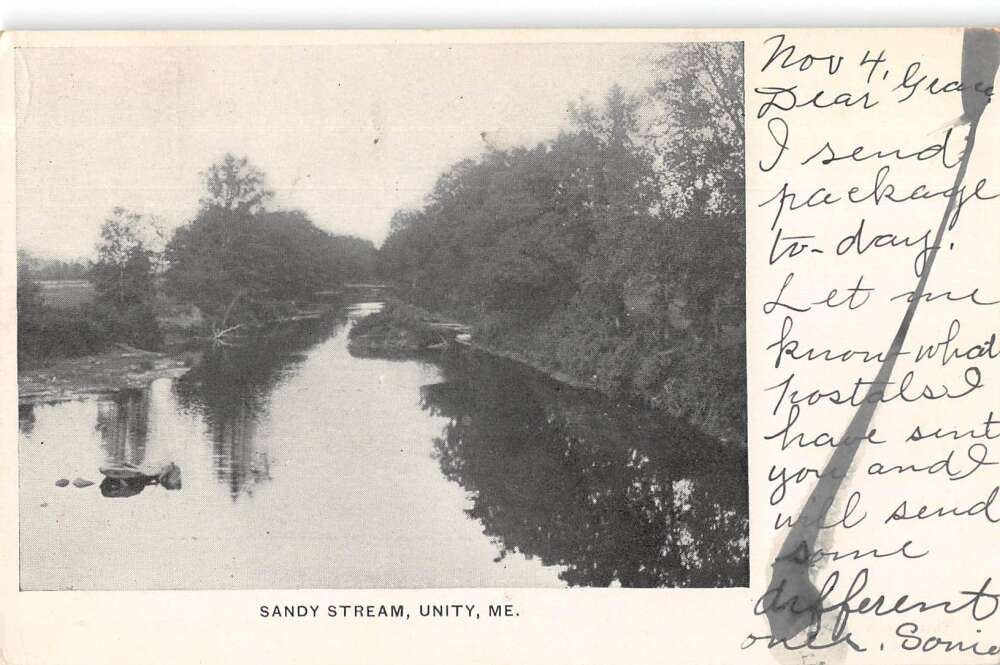 Nov 4,
Dear Grace
I send
package
to-day.
Let me
know what
postals I
have sent
you and I
will send
some
different
ones. Sonie
SANDY STREAM, UNITY, ME.